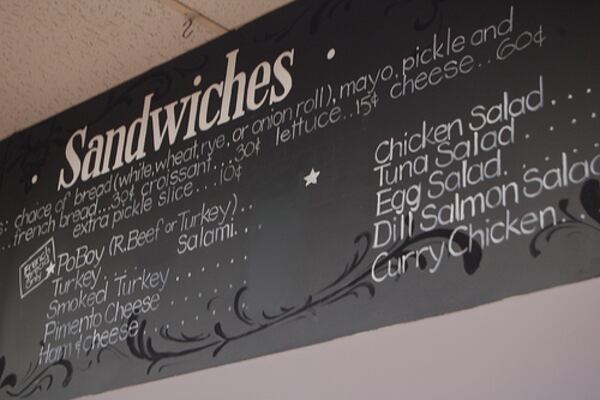 Sandwiches
choice of bread (white, wheat, rye, or onion roll), mayo, pickle and
french bread... 30¢ croissant... 30¢ lettuce.. 15¢ cheese... 60¢
extra pickle slice.... 10¢
French Bread Only
PoBoy (R.Beef or Turkey)..
Salami...
Turkey
Smoked Turkey
Pimento Cheese
Ham & cheese
Chicken Salad....
Tuna Salad
Egg Salad.
Dill Salmon Salad
Curry Chicken..